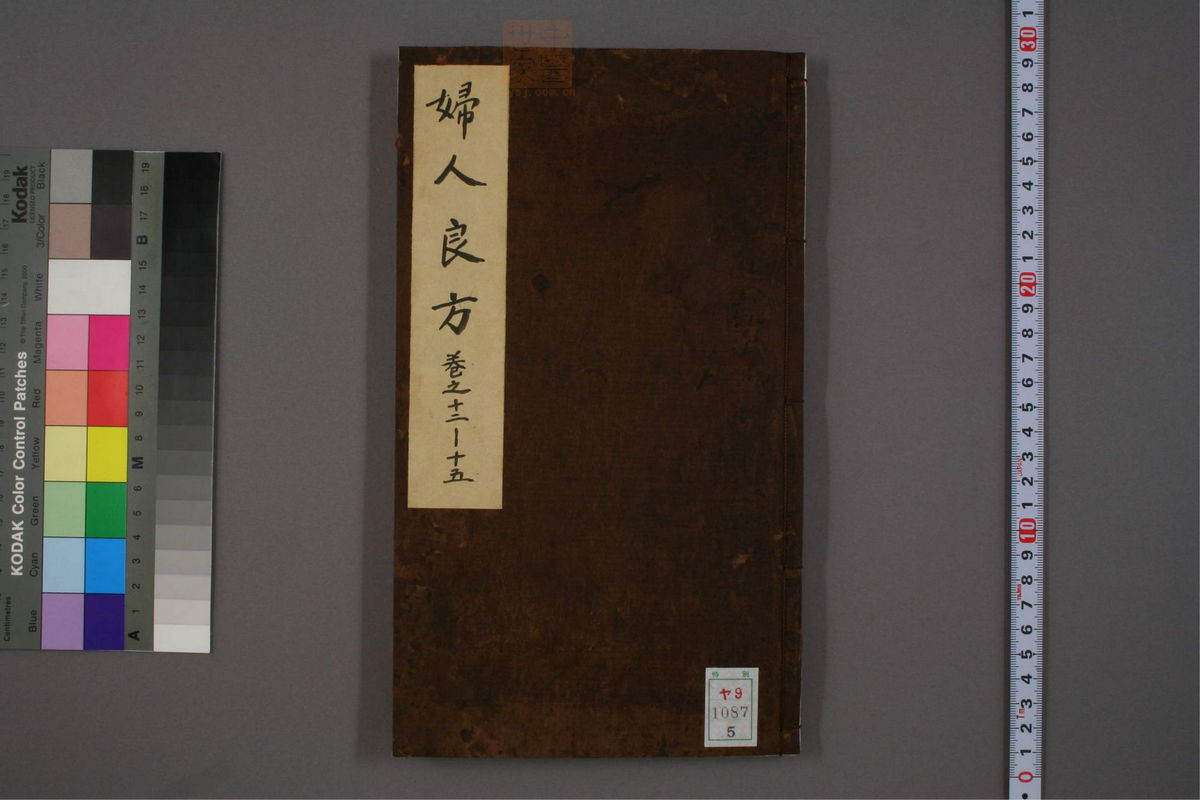 婦人良方 巻之十二－十五
特別
ヤ9
1087
5
Kodak
LICENSED PRODUCT
KODAK Color Control Patches
© The Tiffen Company, 2000
Centimetres
Blue
Cyan
Green
Yellow
Red
Magenta
White
3/Color
Black
A 1 2 3 4 5 6 M 8 9 10 11 12 13 14 15 B 17 18 19
0 1 2 3 4 5 6 7 8 9 10 1 2 3 4 5 6 7 8 9 20 1 2 3 4 5 6 7 8 9 30 1